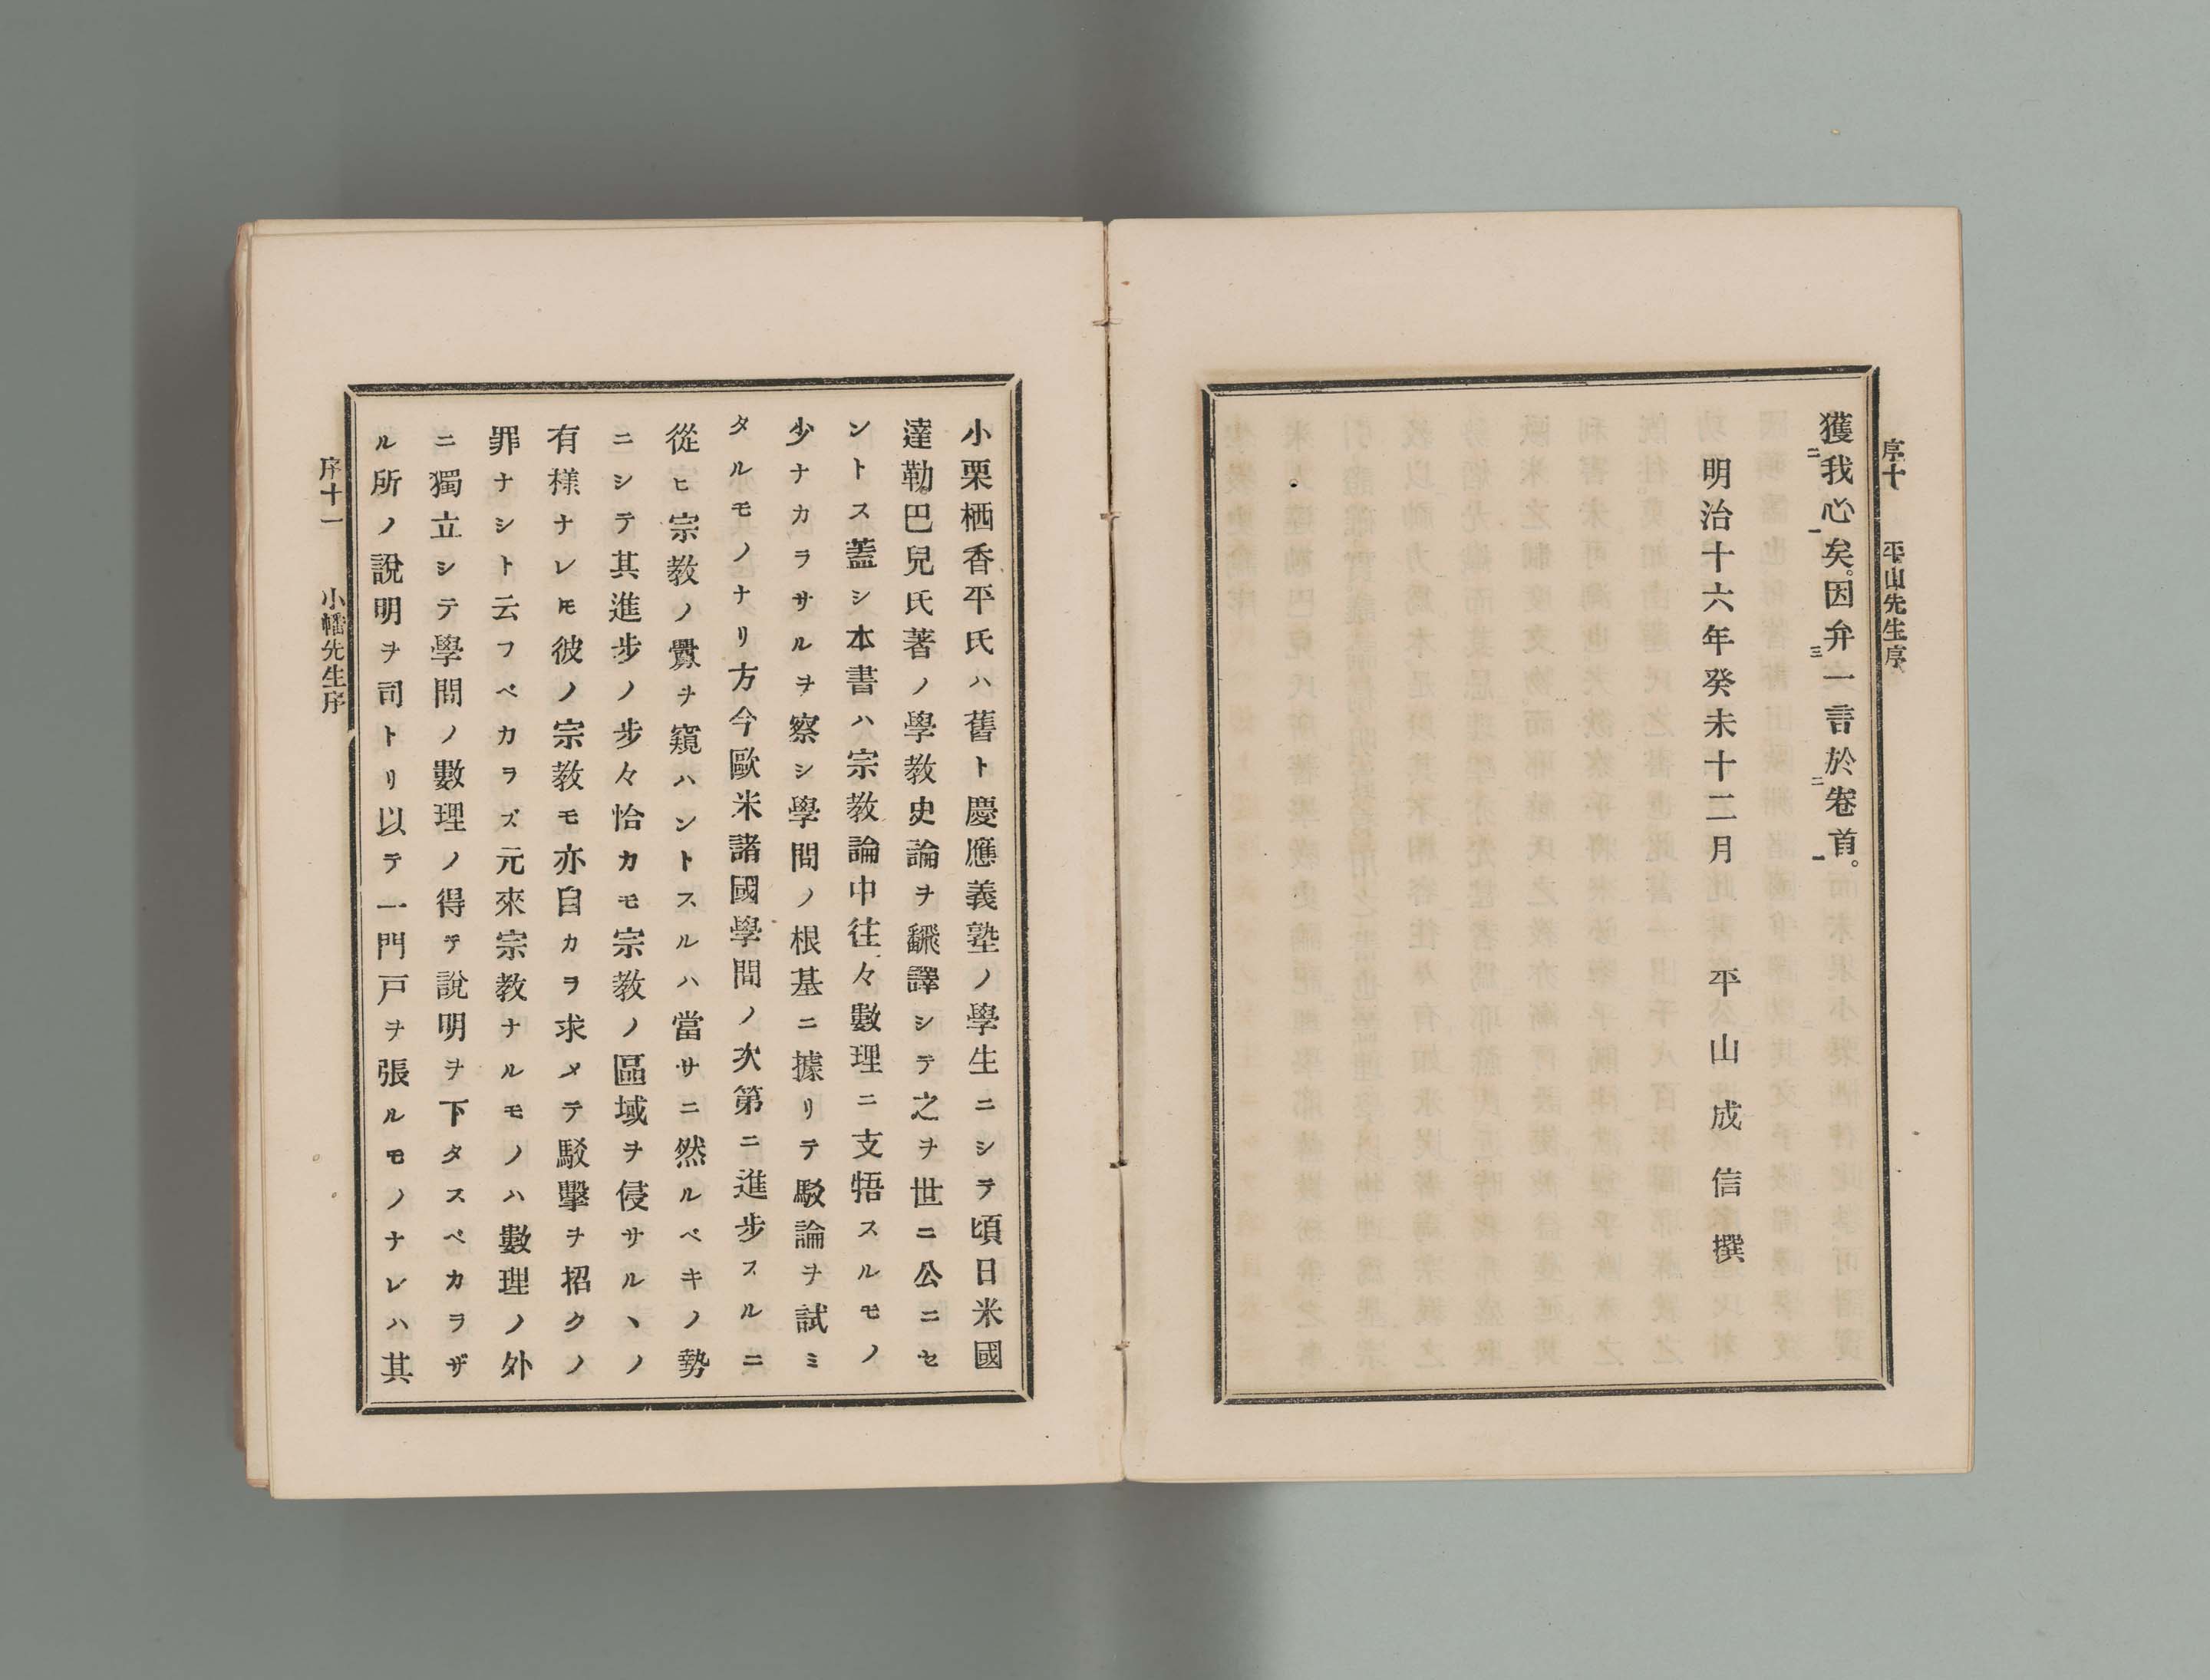 序十　平山先生序
獲二我心一矣。因弁三一言於二卷首一。
明治十六年癸未十二月　平山成信撰
小栗栖香平氏ハ舊ト慶應義塾ノ學生ニシテ頃日米國
達勒巴兒氏著ノ學教史論ヲ飜譯シテ之ヲ世ニ公ニセ
ントス蓋シ本書ハ宗教論中往々數理ニ支牾スルモノ
少ナカラサルヲ察シ學問ノ根基ニ據リテ駁論ヲ試ミ
タルモノナリ方今歐米諸國學問ノ次第ニ進步スルニ
從ヒ宗教ノ釁ヲ窺ハントスルハ當サニ然ルベキノ勢
ニシテ其進步ノ步々恰カモ宗教ノ區域ヲ侵サルヽノ
有樣ナレ𪜈彼ノ宗教モ亦自カヲ求メテ駁擊ヲ招クノ
罪ナシト云フベカラズ元來宗教ナルモノハ數理ノ外
ニ獨立シテ學問ノ數理ノ得テ說明ヲ下タスベカラザ
ル所ノ說明ヲ司トリ以テ一門戸ヲ張ルモノナレハ其
序十一　小幡先生序